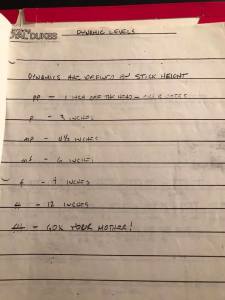 DUKES
DYNAMIC LEVELS
DYNAMICS ARE DEFINED BY STICK HEIGHT
pp - 1 INCH OFF THE HEAD -
p - 3 INCHES
mp - 4 1/2 INCHES
mf - 6 INCHES
f - 9 INCHES
ff - 12 INCHES
fff - YOUR MOTHER!